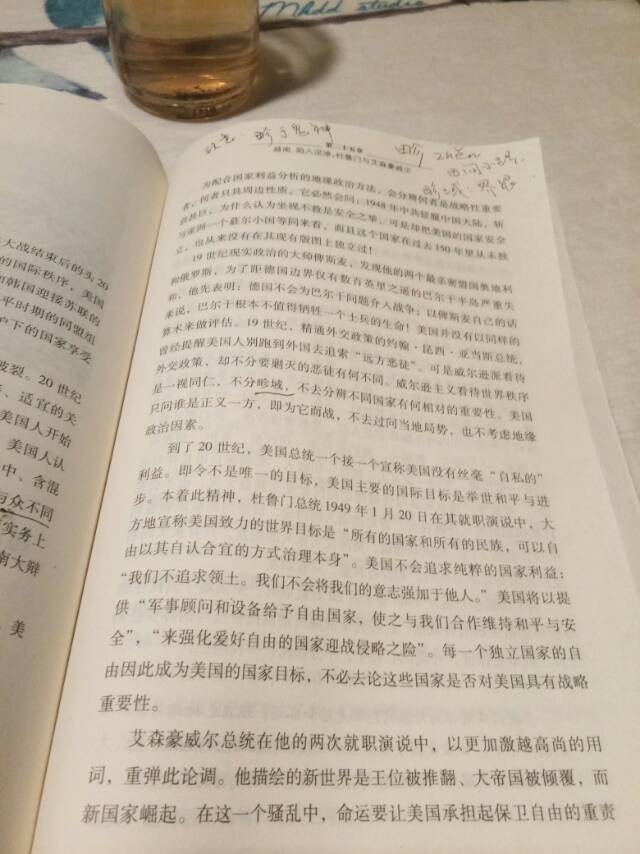 Madd studio
大战结束后的头20
的国际秩序，美国
和韩国迎接苏联的
平时期的同盟组
护下的国家享受
破裂。20世纪
适宜的关
美国人开始
美国人认
中、含混
与众不同
实务上
南大辩
美
畛于鬼神
畛
田间小路
畛域：界限
第二十五章
越南：陷入泥淖，杜鲁门与艾森豪威尔
为配合国家利益分析的地缘政治方法，会分辨何者是战略性重要
者，何者只具周边性质。它必然会问：1948年中共征服中国大陆，斩
获甚巨，为什么认为坐视不救是安全之举，可是却把美国的国家安全
与亚洲一个蕞尔小国等同看，而且这个国家在过去150年里从未独
立，也从来没有在其现有版图上独立过！
19世纪现实政治的大师俾斯麦，发现他的两个最亲密盟国奥地利
和俄罗斯，为了距德国边界仅有数百英里之遥的巴尔干半岛严重失
和，他先表明：德国不会为巴尔干问题介入战争；以俾斯麦自己的话
来说，巴尔干根本不值得牺牲一个士兵的生命！美国并没有以同样的
算术来做评估。19世纪，精通外交政策的约翰·昆西·亚当斯总统，
曾经提醒美国人别跑到外国去追索“远方恶徒”。可是威尔逊派看待
外交政策，却不分要剿灭的恶徒有何不同。威尔逊主义看待世界秩序
是一视同仁，不分畛域，不去分辨不同国家有何相对的重要性。美国
只问谁是正义一方，即为它而战，不去过问当地局势，也不考虑地缘
政治因素。
到了20世纪，美国总统一个接一个宣称美国没有丝毫“自私的”
利益。即令不是唯一的目标，美国主要的国际目标是举世和平与进
步。本着此精神，杜鲁门总统1949年1月20日在其就职演说中，大
方地宣称美国致力的世界目标是“所有的国家和所有的民族，可以自
由以其自认合宜的方式治理本身”。美国不会追求纯粹的国家利益：
“我们不追求领土。我们不会将我们的意志强加于他人。”美国将以提
供“军事顾问和设备给予自由国家，使之与我们合作维持和平与安
全”，“来强化爱好自由的国家迎战侵略之险”。每一个独立国家的自
由因此成为美国的国家目标，不必去论这些国家是否对美国具有战略
重要性。
艾森豪威尔总统在他的两次就职演说中，以更加激越高尚的用
词，重弹此论调。他描绘的新世界是王位被推翻、大帝国被倾覆，而
新国家崛起。在这一个骚乱中，命运要让美国承担起保卫自由的重责